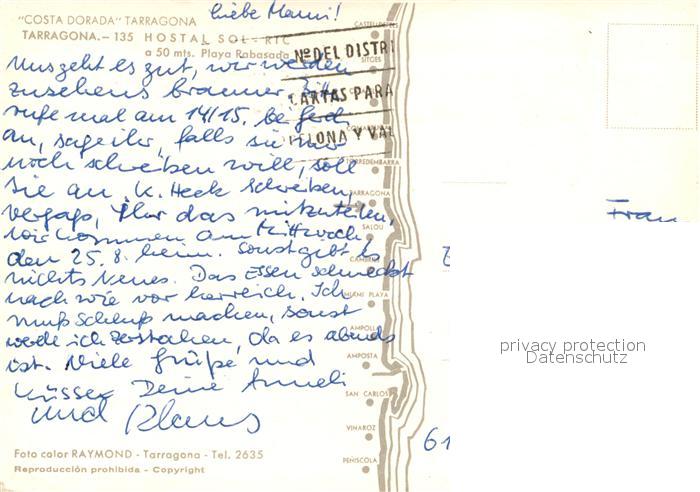 Liebe Mami!
"COSTA DORADA" TARRAGONA
TARRAGONA.- 135 HOSTAL SOL-RTC
a 50 mts. Playa Rabasada
Nº DEL DISTRI
CARTAS PARA
ELONA Y VAL
Uns geht es gut, wir werden
zusehens brauner. Bitte
rufe mal am 14/15. bei
an, sage ihr, falls sie mir
noch schreiben will, soll
sie an K. Heck schreiben,
vergaß, ihr das mitzuteilen,
wir kommen am Mittwoch,
den 25.8. heim. Sonst gibt es
nichts Neues. Das Essen schmeckt
nach wie vor herrlich. Ich
muß Schluß machen, sonst
werde ich zerstochen, da es abends
ist. Viele Grüße und
Küsse Deine Anneli
und Klaus
CASTELLDEFELS
SITGES
TORREDEMBARRA
TARRAGONA
SALOU
CAMBRILS
MIAMI PLAYA
AMPOLLA
AMPOSTA
SAN CARLOS
VINAROZ
PEÑISCOLA
Foto color RAYMOND - Tarragona - Tel. 2635
Reproducción prohibida - Copyright
Frau
61
privacy protection
Datenschutz